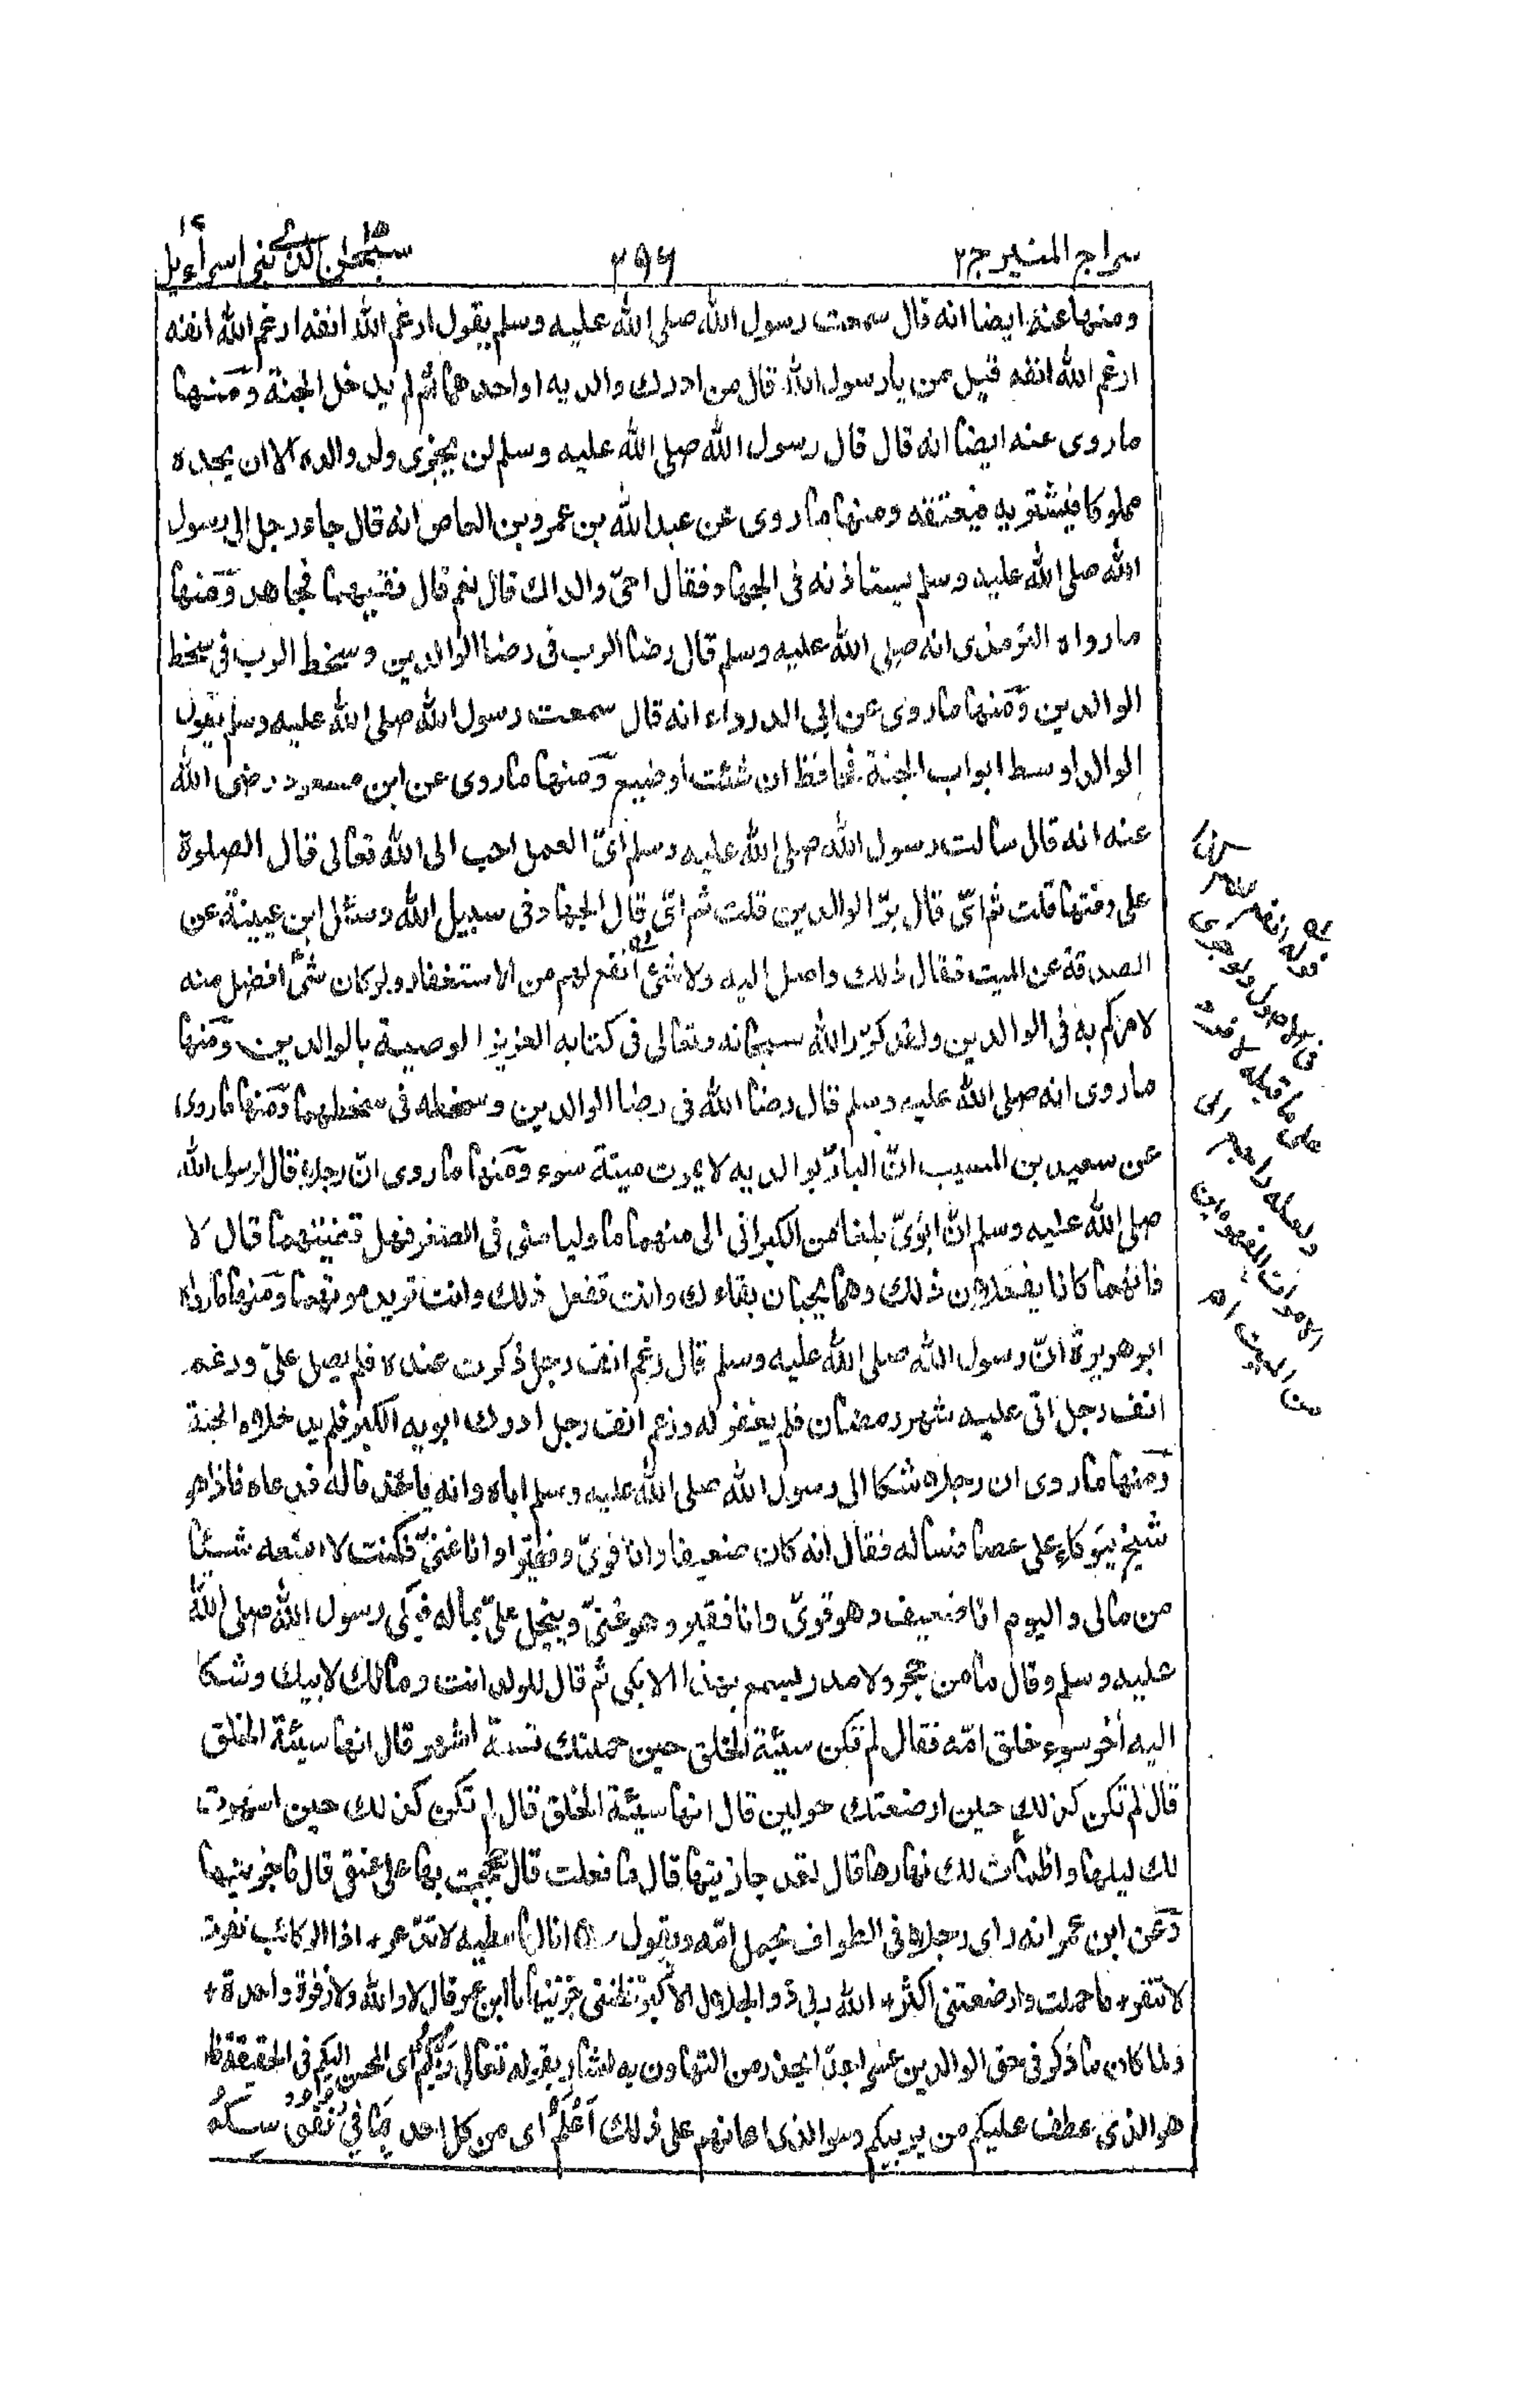 سراج المنير ج٢ ٢٩٦ سبحٰن الذى ١٥ بنى اسرآءيل ١٤
ومنها عنه ايضا انه قال سمعت رسول الله صلى الله عليه وسلم يقول ارغم الله انفه ارغم الله انفه
ارغم الله انفه قيل من يا رسول الله قال من ادرك والديه او احدهما ثم لم يدخل الجنة ومنها
ما روى عنه ايضا انه قال قال رسول الله صلى الله عليه وسلم لن يجزى ولد والده الا ان يجده
مملوكا فيشتريه فيعتقه ومنها ما روى عن عبد الله بن عمرو بن العاص انه قال جاء رجل الى رسول
الله صلى الله عليه وسلم يستاذنه فى الجهاد فقال احىّ والداك قال نعم قال ففيهما فجاهد ومنها
ما رواه الترمذى انه صلى الله عليه وسلم قال رضا الرب فى رضا الوالدين وسخط الرب فى سخط
الوالدين ومنها ما روى عن ابى الدرداء انه قال سمعت رسول الله صلى الله عليه وسلم يقول
الوالد اوسط ابواب الجنة فحافظ ان شئت او ضيع ومنها ما روى عن ابن مسعود رضى الله
عنه انه قال سالت رسول الله صلى الله عليه وسلم اىّ العمل احب الى الله تعالى قال الصلوة
على وقتها قلت ثم اىّ قال برّ الوالدين قلت ثم اىّ قال الجهاد فى سبيل الله وسئل ابن عيينة عن
الصدقة عن الميت فقال ذلك واصل اليه ولا شئ انفع لهم من الاستغفار ولو كان شئ افضل منه
لامركم به فى الوالدين ولقد كرّر الله سبحانه وتعالى فى كتابه العزيز الوصية بالوالدين ومنها
ما روى انه صلى الله عليه وسلم قال رضا الله فى رضا الوالدين وسخطه فى سخطهما ومنها ما روى
عن سعيد بن المسيب انّ البارّ بوالديه لا يموت ميتة سوء ومنها ما روى انّ رجلا قال لرسول الله
صلى الله عليه وسلم انّ ابوىّ بلغا من الكبر انى الى منهما ما وليا منى فى الصغر فهل قضيتهما قال لا
فانهما كانا يفعلان ذلك وهما يحبان بقاءك وانت تفعل ذلك وانت تريد موتهما ومنها ما رواه
ابو هريرة انّ رسول الله صلى الله عليه وسلم قال رغم انف رجل ذكرت عنده فلم يصل علىّ ورغم
انف رجل اتى عليه شهر رمضان فلم يغفر له ورغم انف رجل ادرك ابويه الكبر فلم يدخلاه الجنة
ومنها ما روى ان رجلا شكا الى رسول الله صلى الله عليه وسلم اباه وانه ياخذ ماله فدعاه فاذا هو
شيخ يتوكاء على عصا فساله فقال انه كان ضعيفا وانا قوىّ وفقيرا وانا غنىّ فكنت لا امنعه شيئا
من مالى واليوم انا ضعيف وهو قوىّ وانا فقير وهو غنىّ ويبخل علىّ بماله فبكى رسول الله صلى الله
عليه وسلم وقال ما من حجر ولا مدر يسمع بهذا الا بكى ثم قال للولد انت ومالك لابيك وشكا
اليه آخر سوء خلق امّه فقال لم تكن سيئة الخلق حين حملتك تسعة اشهر قال انها سيئة الخلق
قال لم تكن كذلك حين ارضعتك حولين قال انها سيئة الخلق قال لم تكن كذلك حين اسهرت
لك ليلها واظمأت لك نهارها قال لقد جازيتها قال ما فعلت قال حججت بها على عنقى قال ما جزيتها
وعن ابن عمر انه راى رجلا فى الطواف يحمل امّه ويقول انا لها مطية لا تذعر + اذا الركائب نفرت
لا تنفر + ما حملت وارضعتنى اكثر + الله ربى ذو الجلال الاكبر تظننى جزيتها يا ابن عمر قال لا والله ولا زفرة واحدة +
ولما كان ما ذكر فى حق الوالدين عسرا جدّا يحذر من التهاون به اشار بقوله تعالى رَبُّكُمْ اى المحسن اليكم فى الحقيقة فانه
هو الذى عطف عليكم من يربيكم وهو الذى اعانهم على ذلك اَعْلَمُ اى من كل احد بِمَا فِي نُفُوسِكُمْ
قوله انفع لهم
على ما قبله
ولعله راجع الى
الاموات المفهومين
من الميت اه